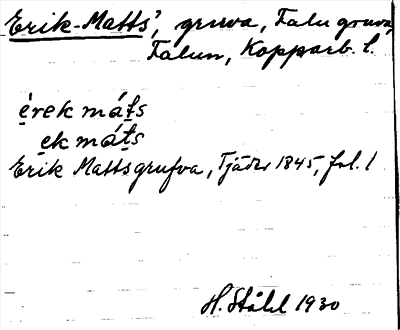 Erik-Matts', gruva, Falu gruva,
Falun, Kopparb. l.
ẹ́rek máṭs
ẹk máṭs
Erik Mattsgrufva, Tjäder 1845, fol. 1
H. Ståhl 1930